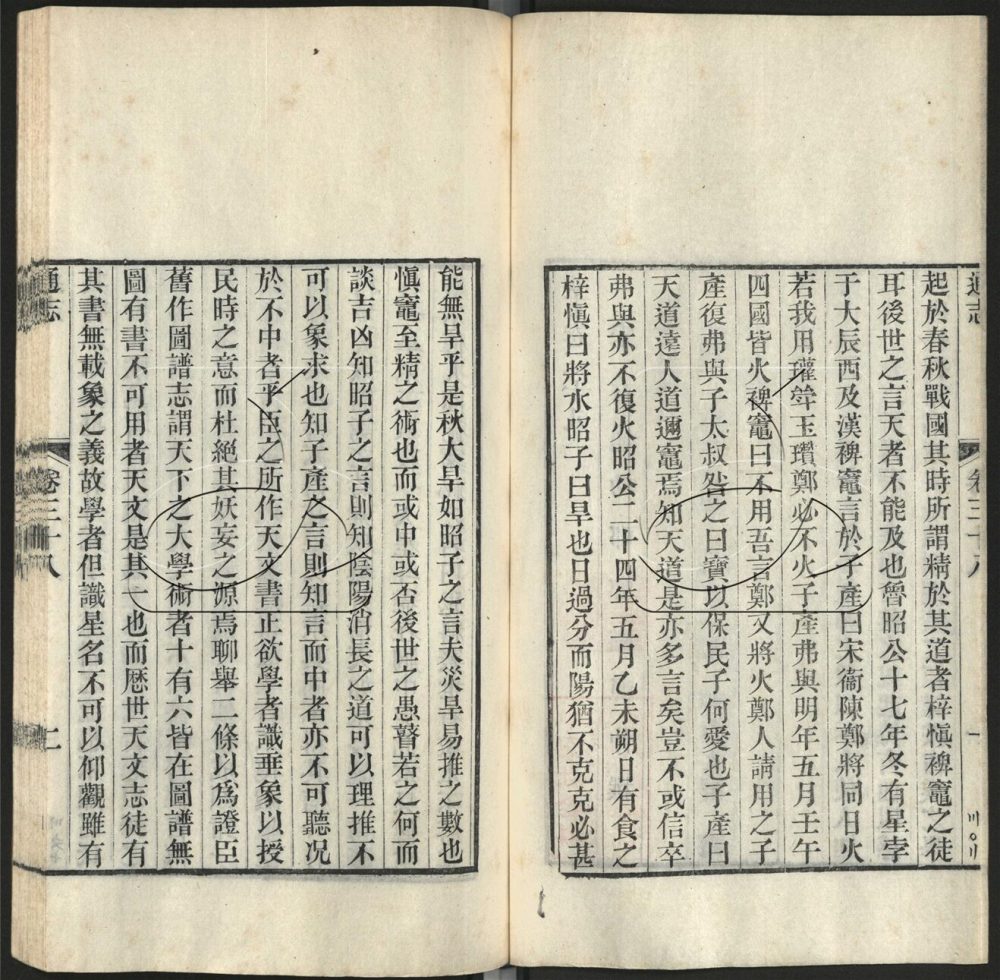 通志
卷三十八
一
起於春秋戰國其時所謂精於其道者梓愼裨竈之徒
耳後世之言天者不能及也魯昭公十七年冬有星孛
于大辰西及漢裨竈言於子產曰宋衞陳鄭將同日火
若我用瓘斝玉瓚鄭必不火子產弗與明年五月壬午
四國皆火裨竈曰不用吾言鄭又將火鄭人請用之子
產復弗與子太叔咎之曰寶以保民子何愛也子產曰
天道遠人道邇竈焉知天道是亦多言矣豈不或信卒
弗與亦不復火昭公二十四年五月乙未朔日有食之
梓愼曰將水昭子曰旱也日過分而陽猶不克克必甚
能無旱乎是秋大旱如昭子之言夫災旱易推之數也
愼竈至精之術也而或中或否後世之愚瞽若之何而
談吉凶知昭子之言則知陰陽消長之道可以理推不
可以象求也知子產之言則知言而中者亦不可聽况
於不中者乎臣之所作天文書正欲學者識垂象以授
民時之意而杜絕其妖妄之源焉聊舉二條以爲證臣
舊作圖譜志謂天下之大學術者十有六皆在圖譜無
圖有書不可用者天文是其一也而歷世天文志徒有
其書無載象之義故學者但識星名不可以仰觀雖有
通志
卷三十八
二